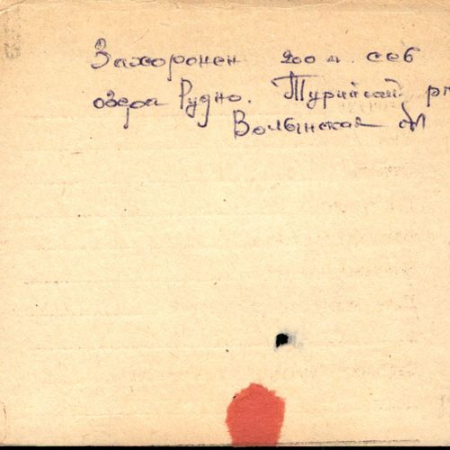 Захоронен 200 м. сев
озера Рудно. Турийский рн
Волынская